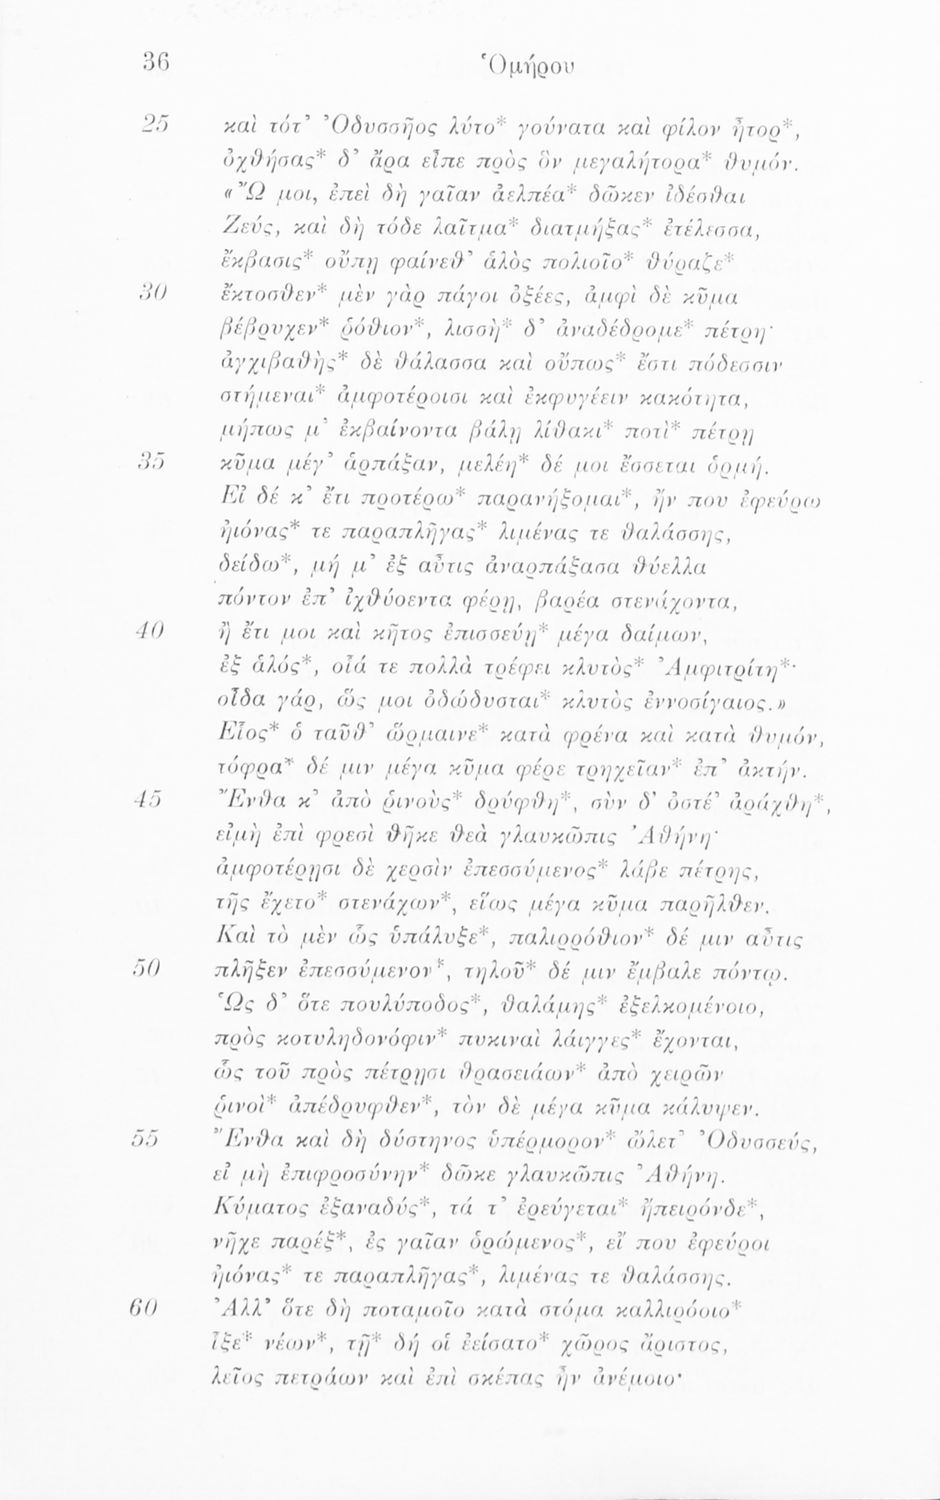 36
Ὁμήρου
25 καὶ τότ’ Ὀδυσσῆος λύτο* γούνατα καὶ φίλον ἦτορ*,
ὀχθήσας* δ’ ἄρα εἶπε πρὸς ὃν μεγαλήτορα* θυμόν.
«Ὤ μοι, ἐπεὶ δὴ γαῖαν ἀελπέα* δῶκεν ἰδέσθαι
Ζεύς, καὶ δὴ τόδε λαῖτμα* διατμήξας* ἐτέλεσσα,
ἔκβασις* οὔπῃ φαίνεθ’ ἁλὸς πολιοῖο* θύραζε*
30 ἔκτοσθεν* μὲν γὰρ πάγοι ὀξέες, ἀμφὶ δὲ κῦμα
βέβρυχεν* ῥόθιον*, λισσὴ* δ’ ἀναδέδρομε* πέτρη·
ἀγχιβαθὴς* δὲ θάλασσα καὶ οὔπως* ἔστι πόδεσσιν
στήμεναι* ἀμφοτέροισι καὶ ἐκφυγέειν κακότητα,
μήπως μ’ ἐκβαίνοντα βάλῃ λίθακι* ποτὶ* πέτρῃ
35 κῦμα μέγ’ ἁρπάξαν, μελέη* δέ μοι ἔσσεται ὁρμή.
Εἰ δέ κ’ ἔτι προτέρω* παρανήξομαι*, ἤν που ἐφεύρω
ἠιόνας* τε παραπλῆγας* λιμένας τε θαλάσσης,
δείδω*, μή μ’ ἐξ αὖτις ἀναρπάξασα θύελλα
πόντον ἐπ’ ἰχθύοεντα φέρῃ, βαρέα στενάχοντα,
40 ἢ ἔτι μοι καὶ κῆτος ἐπισσεύῃ* μέγα δαίμων,
ἐξ ἁλός*, οἷά τε πολλὰ τρέφει κλυτὸς* Ἀμφιτρίτη*·
οἶδα γάρ, ὥς μοι ὀδώδυσται* κλυτὸς ἐννοσίγαιος.»
Εἷος* ὁ ταῦθ’ ὥρμαινε* κατὰ φρένα καὶ κατὰ θυμόν,
τόφρα* δέ μιν μέγα κῦμα φέρε τρηχεῖαν* ἐπ’ ἀκτήν.
45 Ἔνθα κ’ ἀπὸ ῥινοὺς* δρύφθη*, σὺν δ’ ὀστέ’ ἀράχθη*,
εἰμὴ ἐπὶ φρεσὶ θῆκε θεὰ γλαυκῶπις Ἀθήνη·
ἀμφοτέρῃσι δὲ χερσὶν ἐπεσσύμενος* λάβε πέτρης,
τῆς ἔχετο* στενάχων*, εἵως μέγα κῦμα παρῆλθεν.
Καὶ τὸ μὲν ὣς ὑπάλυξε*, παλιρρόθιον* δέ μιν αὖτις
50 πλῆξεν ἐπεσσύμενον*, τηλοῦ* δέ μιν ἔμβαλε πόντῳ.
Ὡς δ’ ὅτε πουλύποδος*, θαλάμης* ἐξελκομένοιο,
πρὸς κοτυληδονόφιν* πυκιναὶ λάιγγες* ἔχονται,
ὣς τοῦ πρὸς πέτρῃσι θρασειάων* ἀπὸ χειρῶν
ῥινοὶ* ἀπέδρυφθεν*, τὸν δὲ μέγα κῦμα κάλυψεν.
55 Ἔνθα καὶ δὴ δύστηνος ὑπέρμορον* ὤλετ’ Ὀδυσσεύς,
εἰ μὴ ἐπιφροσύνην* δῶκε γλαυκῶπις Ἀθήνη.
Κύματος ἐξαναδύς*, τά τ’ ἐρεύγεται* ἤπειρόνδε*,
νῆχε παρέξ*, ἐς γαῖαν ὁρώμενος*, εἴ που ἐφεύροι
ἠιόνας* τε παραπλῆγας*, λιμένας τε θαλάσσης.
60 Ἀλλ’ ὅτε δὴ ποταμοῖο κατὰ στόμα καλλιρόοιο*
ἷξε* νέων*, τῇ* δή οἱ ἐείσατο* χῶρος ἄριστος,
λεῖος πετράων καὶ ἐπὶ σκέπας ἦν ἀνέμοιο·